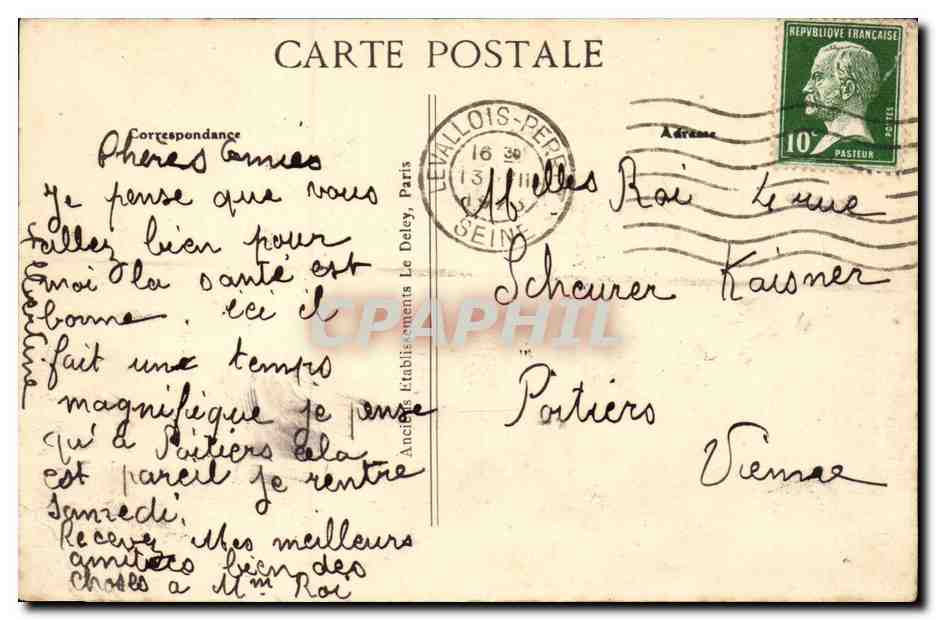 CARTE POSTALE
Correspondance
Adresse
REPVBLIQUE FRANÇAISE
10c
POSTES
PASTEUR
LEVALLOIS-PERRET
16 30
13
SEINE
Anciens Etablissements Le Deley, Paris
Chères Amies
je pense que vous
allez bien pour
moi la santé est
bonne. ici il
fait une temps
magnifique je pense
qu'a Poitiers cela
est pareil je rentre
Samedi.
Recevez Mes meilleurs
amitiés bien des
choses a Mme Roi
Melles Roi
Scheurer Kaisner
Poitiers
Vienne
CPAPHIL